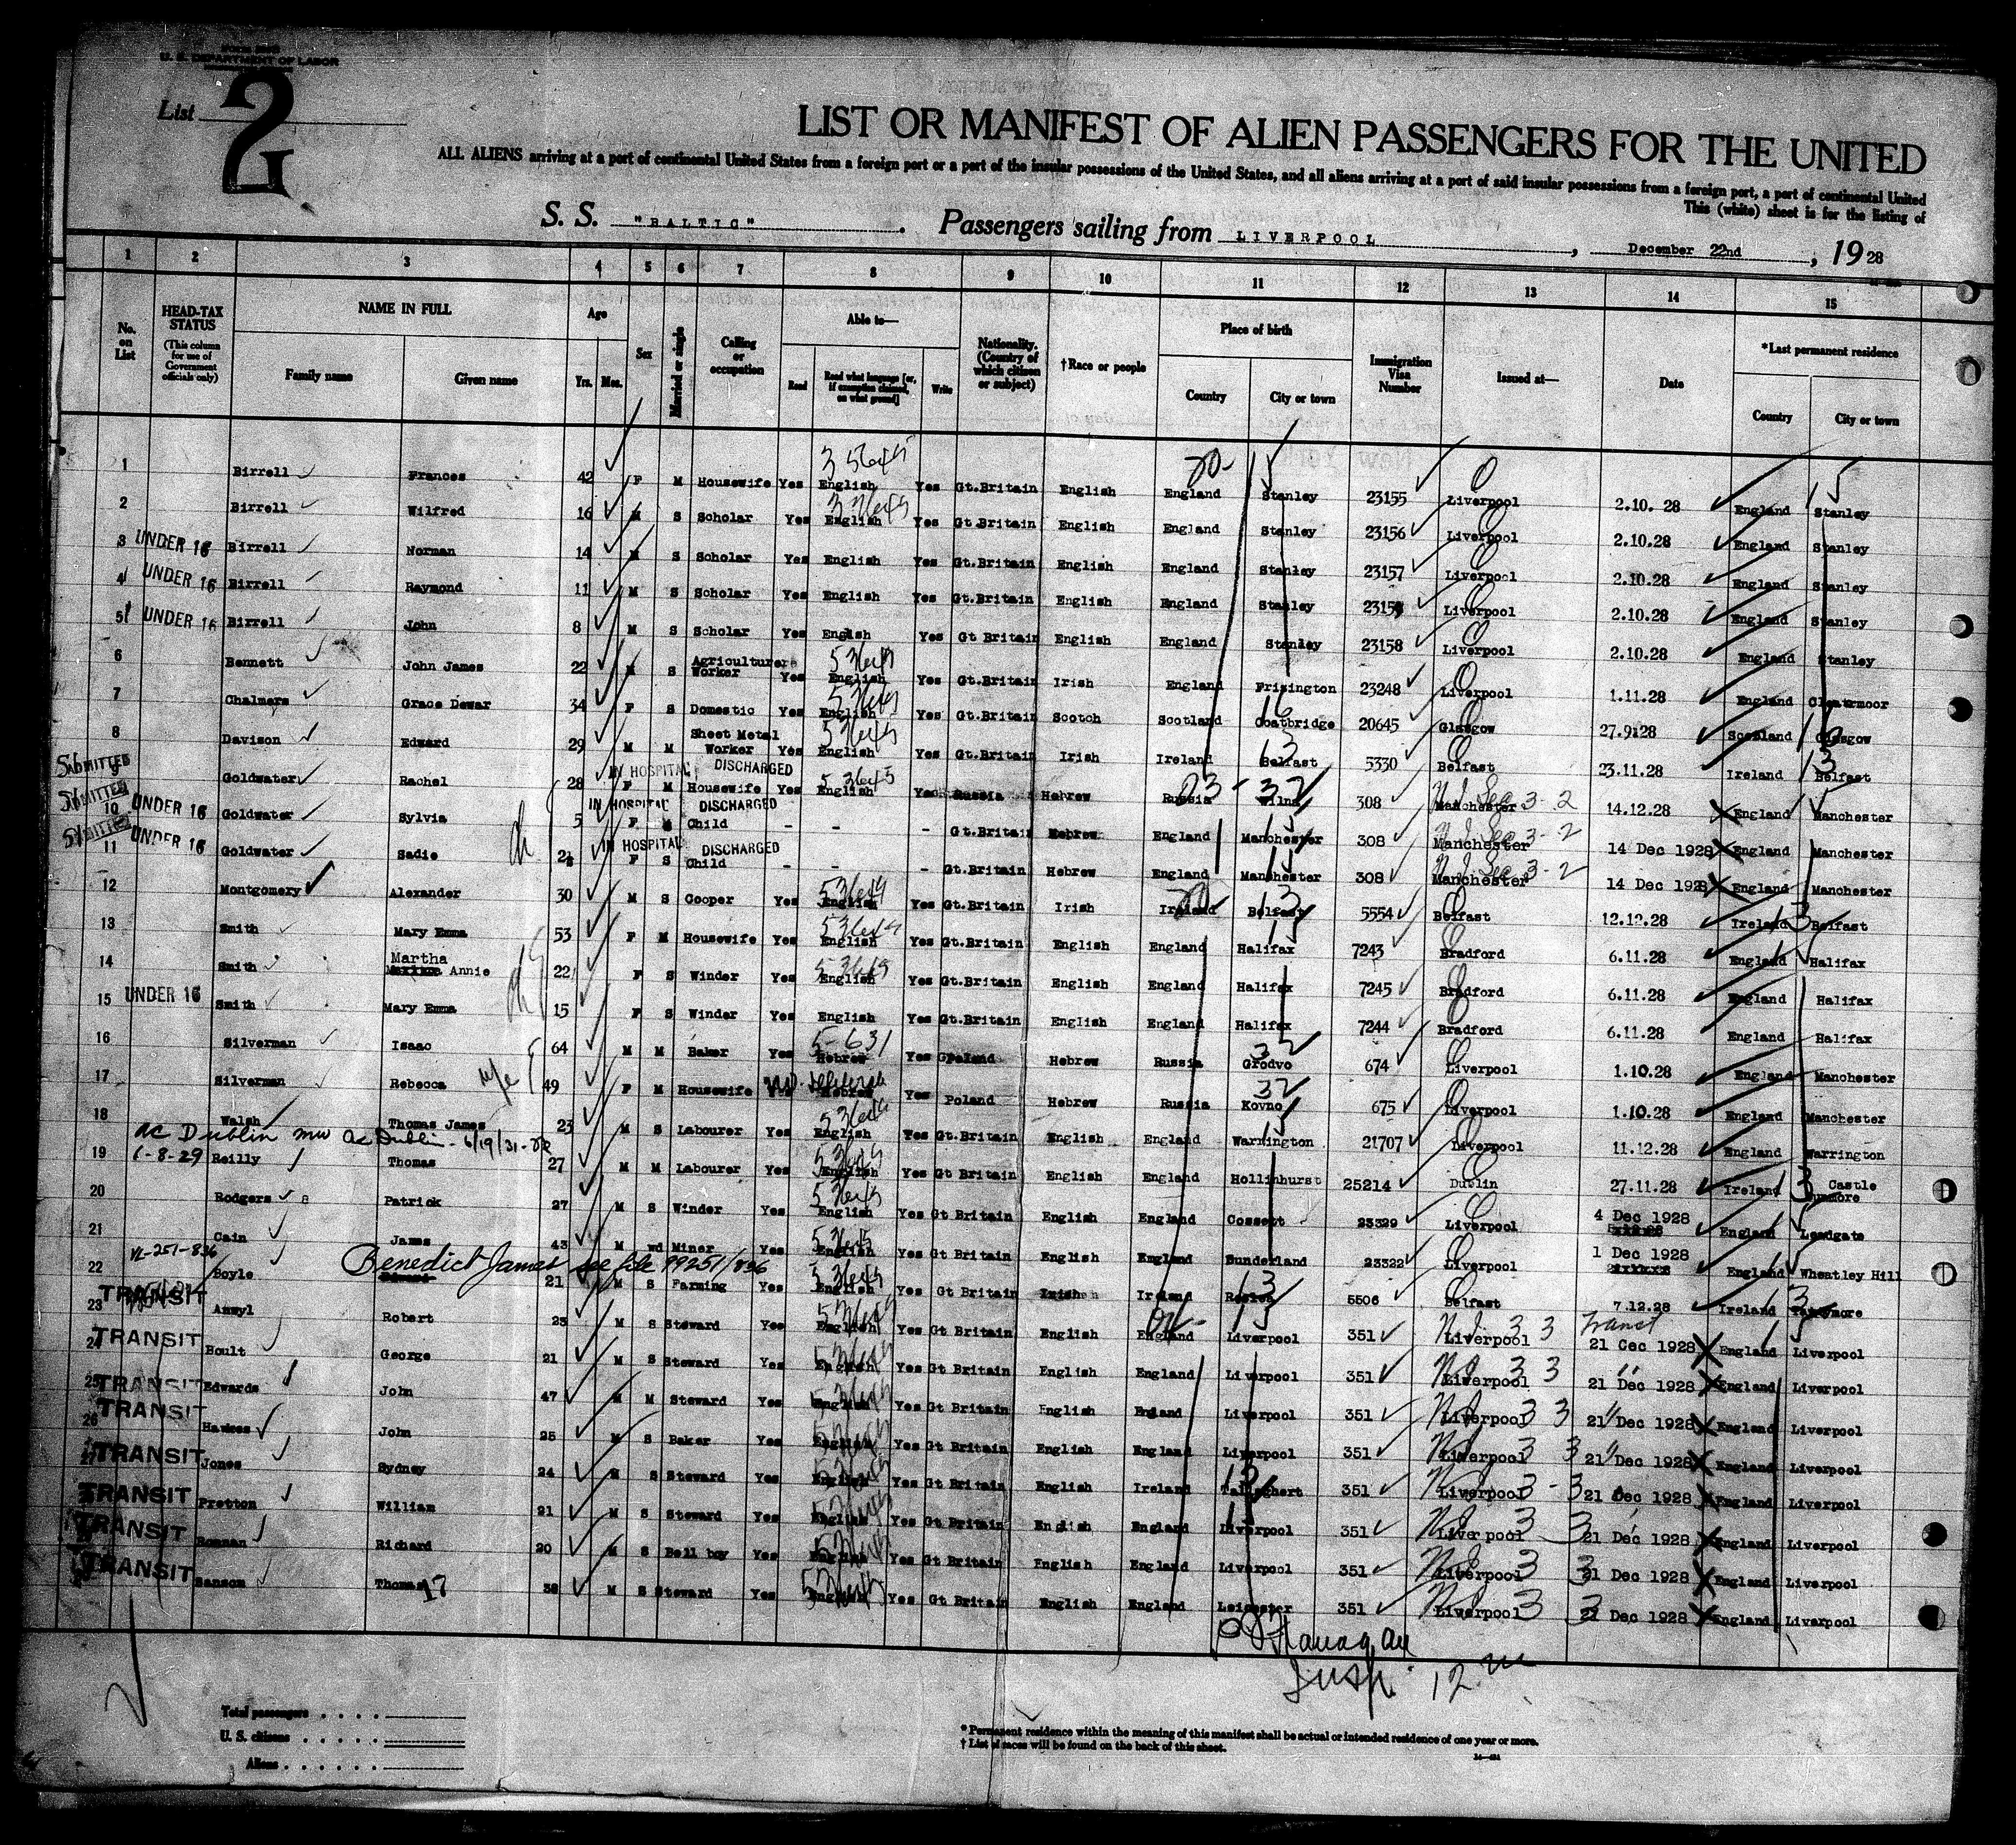 FORM 500
U. S. DEPARTMENT OF LABOR
List 2
LIST OR MANIFEST OF ALIEN PASSENGERS FOR THE UNITED
ALL ALIENS arriving at a port of continental United States from a foreign port or a port of the insular possessions of the United States, and all aliens arriving at a port of said insular possessions from a foreign port, a port of continental United
This (white) sheet is for the listing of
S. S. "BALTIC" . Passengers sailing from LIVERPOOL , December 22nd , 19 28
1 2 3 4 5 6 7 8 9 10 11 12 13 14 15
No. on List HEAD-TAX STATUS (This column for use of Government officials only) NAME IN FULL Family name Given name Age Yrs. Mos. Sex Married or single Calling or occupation Able to— Read Read what language [or, if exemption claimed, on what ground] Write Nationality. (Country of which citizen or subject) †Race or people Place of birth Country City or town Immigration Visa Number Issued at— Date *Last permanent residence Country City or town
1 Birrell Frances 42 F M Housewife Yes English Yes Gt.Britain English England Stanley 23155 Liverpool 2.10.28 England Stanley
2 Birrell Wilfred 16 M S Scholar Yes English Yes Gt.Britain English England Stanley 23156 Liverpool 2.10.28 England Stanley
3 UNDER 16 Birrell Norman 14 M S Scholar Yes English Yes Gt.Britain English England Stanley 23157 Liverpool 2.10.28 England Stanley
4 UNDER 16 Birrell Raymond 11 M S Scholar Yes English Yes Gt.Britain English England Stanley Liverpool 2.10.28 England Stanley
5 UNDER 16 Birrell John 8 M S Scholar Yes English Yes Gt Britain English England Stanley 23158 Liverpool 2.10.28 England Stanley
6 Bennett John James 22 M S Agricultural Worker Yes English Yes Gt.Britain Irish England Frisington 23248 Liverpool 1.11.28 England Cleatrmoor
7 Chalmers Grace Dewar 34 F S Domestic Yes English Yes Gt.Britain Scotch Scotland Coatbridge 20645 Glasgow 27.9.28 Scotland Glasgow
8 Davison Edward 29 M M Sheet Metal Worker Yes English Yes Gt.Britain Irish Ireland Belfast 5330 Belfast 23.11.28 Ireland Belfast
ADMITTED 9 Goldwater Rachel 28 IN HOSPITAL DISCHARGED F M Housewife Yes English Yes Russia Hebrew Russia Vilna 308 Manchester 14.12.28 England Manchester
ADMITTED 10 UNDER 16 Goldwater Sylvia 5 IN HOSPITAL DISCHARGED F Child - - - Gt.Britain Hebrew England Manchester 308 Manchester 14 Dec 1928 England Manchester
ADMITTED 11 UNDER 16 Goldwater Sadie IN HOSPITAL DISCHARGED F S Child - - - Gt.Britain Hebrew England Manchester 308 Manchester 14 Dec 1928 England Manchester
12 Montgomery Alexander 30 M S Cooper Yes English Yes Gt.Britain Irish Ireland Belfast 5554 Belfast 12.12.28 Ireland Belfast
13 Smith Mary Emma 53 F M Housewife Yes English Yes Gt.Britain English England Halifax 7243 Bradford 6.11.28 England Halifax
14 Smith Martha Annie 22 F S Winder Yes English Yes Gt.Britain English England Halifax 7245 Bradford 6.11.28 England Halifax
15 UNDER 16 Smith Mary Emma 15 F S Winder Yes English Yes Gt.Britain English England Halifax 7244 Bradford 6.11.28 England Halifax
16 Silverman Isaac 64 M M Baker Yes Hebrew Yes Poland Hebrew Russia Grodvo 674 Liverpool 1.10.28 England Manchester
17 Silverman Rebecca 49 F M Housewife Hebrew Yes Poland Hebrew Russia Kovno 675 Liverpool 1.10.28 England Manchester
18 Walsh Thomas James 23 M S Labourer Yes English Yes Gt.Britain English England Warrington 21707 Liverpool 11.12.28 England Warrington
ac Dublin ac Dublin - 6/19/31
19 6-8-29 Reilly Thomas 27 M M Labourer Yes English Yes Gt Britain English England Hollinhurst 25214 Dublin 27.11.28 Ireland Castle
20 Rodgers Patrick 27 M S Winder Yes English Yes Gt Britain English England Consett 23329 Liverpool 4 Dec 1928 England Leadgate
21 Cain James 43 M wd Miner Yes English Yes Gt Britain English England Sunderland 23322 Liverpool 1 Dec 1928 England Wheatley Hill
Benedict James see file 99251/836
22 Boyle 21 M S Farming Yes English Yes Gt Britain Irish Ireland 5506 Belfast 7.12.28 Ireland
23 TRANSIT Anwyl Robert 23 M S Steward Yes English Yes Gt Britain English England Liverpool 351 Liverpool 21 Cec 1928 England Liverpool
24 TRANSIT Boult George 21 M S Steward Yes English Yes Gt Britain English England Liverpool 351 Liverpool 21 Dec 1928 England Liverpool
25 TRANSIT Edwards John 47 M M Steward Yes English Yes Gt Britain English England Liverpool 351 Liverpool 21 Dec 1928 England Liverpool
26 TRANSIT John 25 M S Baker Yes English Yes Gt Britain English England Liverpool 351 Liverpool 21 Dec 1928 England Liverpool
TRANSIT Jones Sydney 24 M S Steward Yes English Yes Gt Britain English Ireland 351 Liverpool 21 Dec 1928 England Liverpool
TRANSIT Pretton William 21 M S Steward Yes English Yes Gt Britain English England Liverpool 351 Liverpool 21 Dec 1928 England Liverpool
TRANSIT Richard 20 M S Bell boy Yes English Yes Gt Britain English England Liverpool 351 Liverpool 21 Dec 1928 England Liverpool
TRANSIT Sansom Thomas 38 M S Steward Yes English Yes Gt Britain English England Leicester 351 Liverpool 21 Dec 1928 England Liverpool
17
Insp. 12
Total passengers
U. S. citizens
Aliens
* Permanent residence within the meaning of this manifest shall be actual or intended residence of one year or more.
† List of races will be found on the back of this sheet.